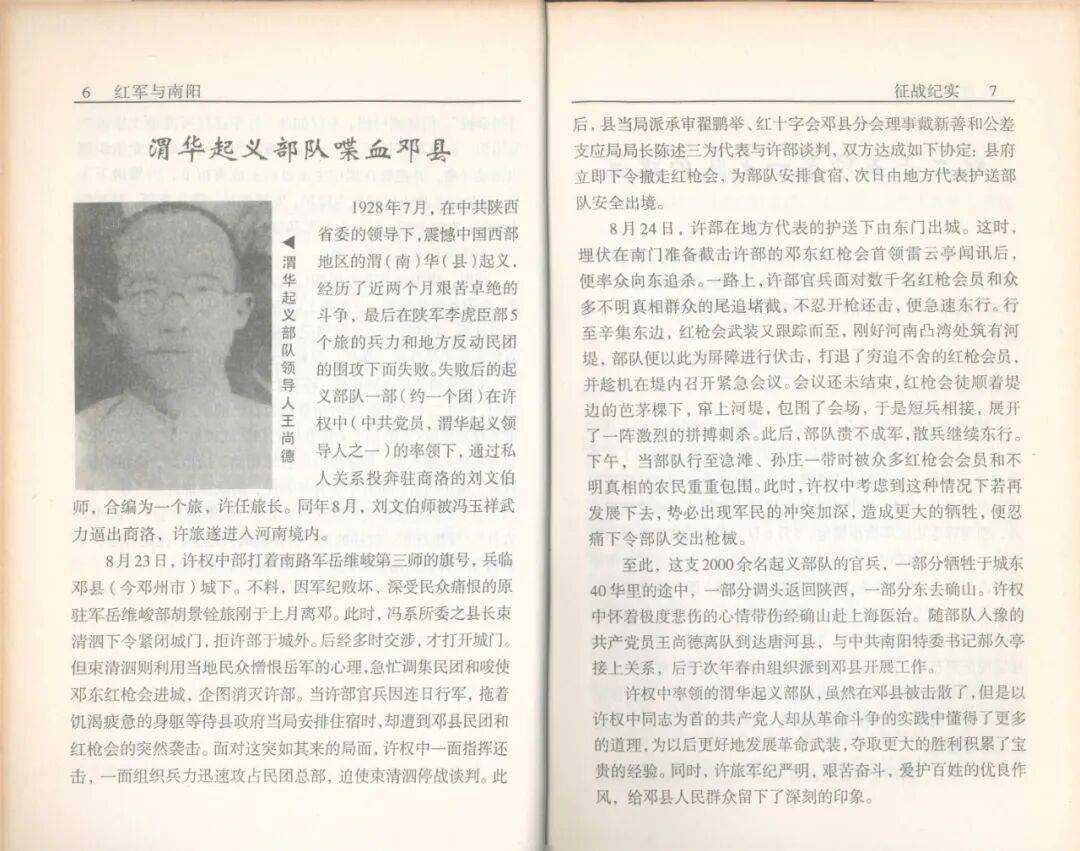 6 红军与南阳
渭华起义部队喋血邓县
◀渭华起义部队领导人王尚德
1928年7月，在中共陕西
省委的领导下，震憾中国西部
地区的渭（南）华（县）起义，
经历了近两个月艰苦卓绝的
斗争，最后在陕军李虎臣部5
个旅的兵力和地方反动民团
的围攻下而失败。失败后的起
义部队一部（约一个团）在许
权中（中共党员，渭华起义领
导人之一）的率领下，通过私
人关系投奔驻商洛的刘文伯
师，合编为一个旅，许任旅长。同年8月，刘文伯师被冯玉祥武
力逼出商洛，许旅遂进人河南境内。
8月23日，许权中部打着南路军岳维峻第三师的旗号，兵临
邓县（今邓州市）城下。不料，因军纪败坏、深受民众痛恨的原
驻军岳维峻部胡景铨旅刚于上月离邓。此时，冯系所委之县长束
清泗下令紧闭城门，拒许部于城外。后经多时交涉，才打开城门。
但束清泗则利用当地民众憎恨岳军的心理，急忙调集民团和唆使
邓东红枪会进城，企图消灭许部。当许部官兵因连日行军，拖着
饥渴疲惫的身躯等待县政府当局安排住宿时，却遭到邓县民团和
红枪会的突然袭击。面对这突如其来的局面，许权中一面指挥还
击，一面组织兵力迅速攻占民团总部，迫使束清泗停战谈判。此
征战纪实 7
后，县当局派承审翟鹏举、红十字会邓县分会理事戴新善和公差
支应局局长陈述三为代表与许部谈判，双方达成如下协定：县府
立即下令撤走红枪会，为部队安排食宿、次日由地方代表护送部
队安全出境。
8月24日，许部在地方代表的护送下由东门出城。这时，
埋伏在南门准备截击许部的邓东红枪会首领雷云亭闻讯后，
便率众向东追杀。一路上，许部官兵面对数千名红枪会员和众
多不明真相群众的尾追堵截，不忍开枪还击，便急速东行。行
至辛集东边，红枪会武装又跟踪而至，刚好河南凸湾处筑有河
堤，部队便以此为屏障进行伏击，打退了穷追不舍的红枪会员，
并趁机在堤内召开紧急会议。会议还未结束，红枪会徒顺着堤
边的芭茅棵下，窜上河堤，包围了会场，于是短兵相接，展开
了一阵激烈的拼搏刺杀。此后，部队溃不成军，散兵继续东行。
下午，当部队行至潦滩、孙庄一带时被众多红枪会会员和不
明真相的农民重重包围。此时，许权中考虑到这种情况下若再
发展下去，势必出现军民的冲突加深，造成更大的牺牲，便忍
痛下令部队交出枪械。
至此，这支2000余名起义部队的官兵，一部分牺牲于城东
40华里的途中，一部分调头返回陕西，一部分东去确山。许权
中怀着极度悲伤的心情带伤经确山赴上海医治。随部队人豫的
共产党员王尚德离队到达唐河县，与中共南阳特委书记郝久亭
接上关系，后于次年春由组织派到邓县开展工作。
许权中率领的渭华起义部队，虽然在邓县被击散了，但是以
许权中同志为首的共产党人却从革命斗争的实践中懂得了更多
的道理，为以后更好地发展革命武装，夺取更大的胜利积累了宝
贵的经验。同时，许旅军纪严明，艰苦奋斗，爱护百姓的优良作
风，给邓县人民群众留下了深刻的印象。